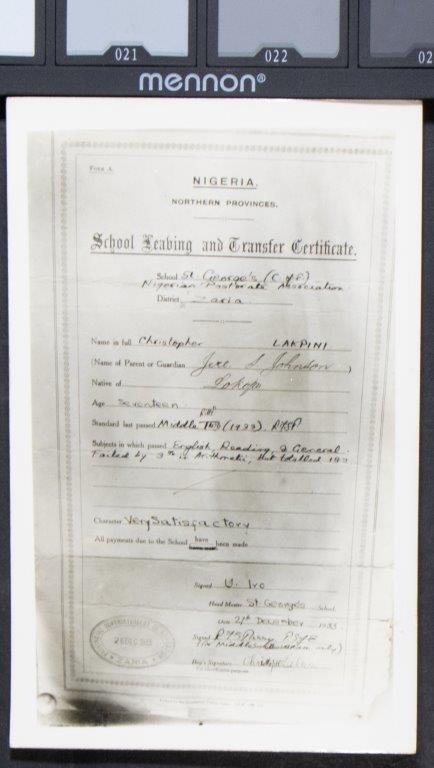 021
022
02
mennon®
Form A.
NIGERIA.
NORTHERN PROVINCES.
School Leaving and Transfer Certificate.
School St. George's (C of E)
Nigerian Pastorate Association
District Zaria
Name in full Christopher LAKPINI
(Name of Parent or Guardian S Johnson )
Native of Lokoja
Age Seventeen
Standard last passed Middle Two (1933).
Subjects in which passed English, Reading, & General.
Failed by 3% in Arithmetic, but totalled
Character Very Satisfactory
All payments due to the School have been made
Signed U. Ivo
Head Master St. George's School.
Date December 1933
Signed
(in Middle only)
ZARIA
Boy's Signature